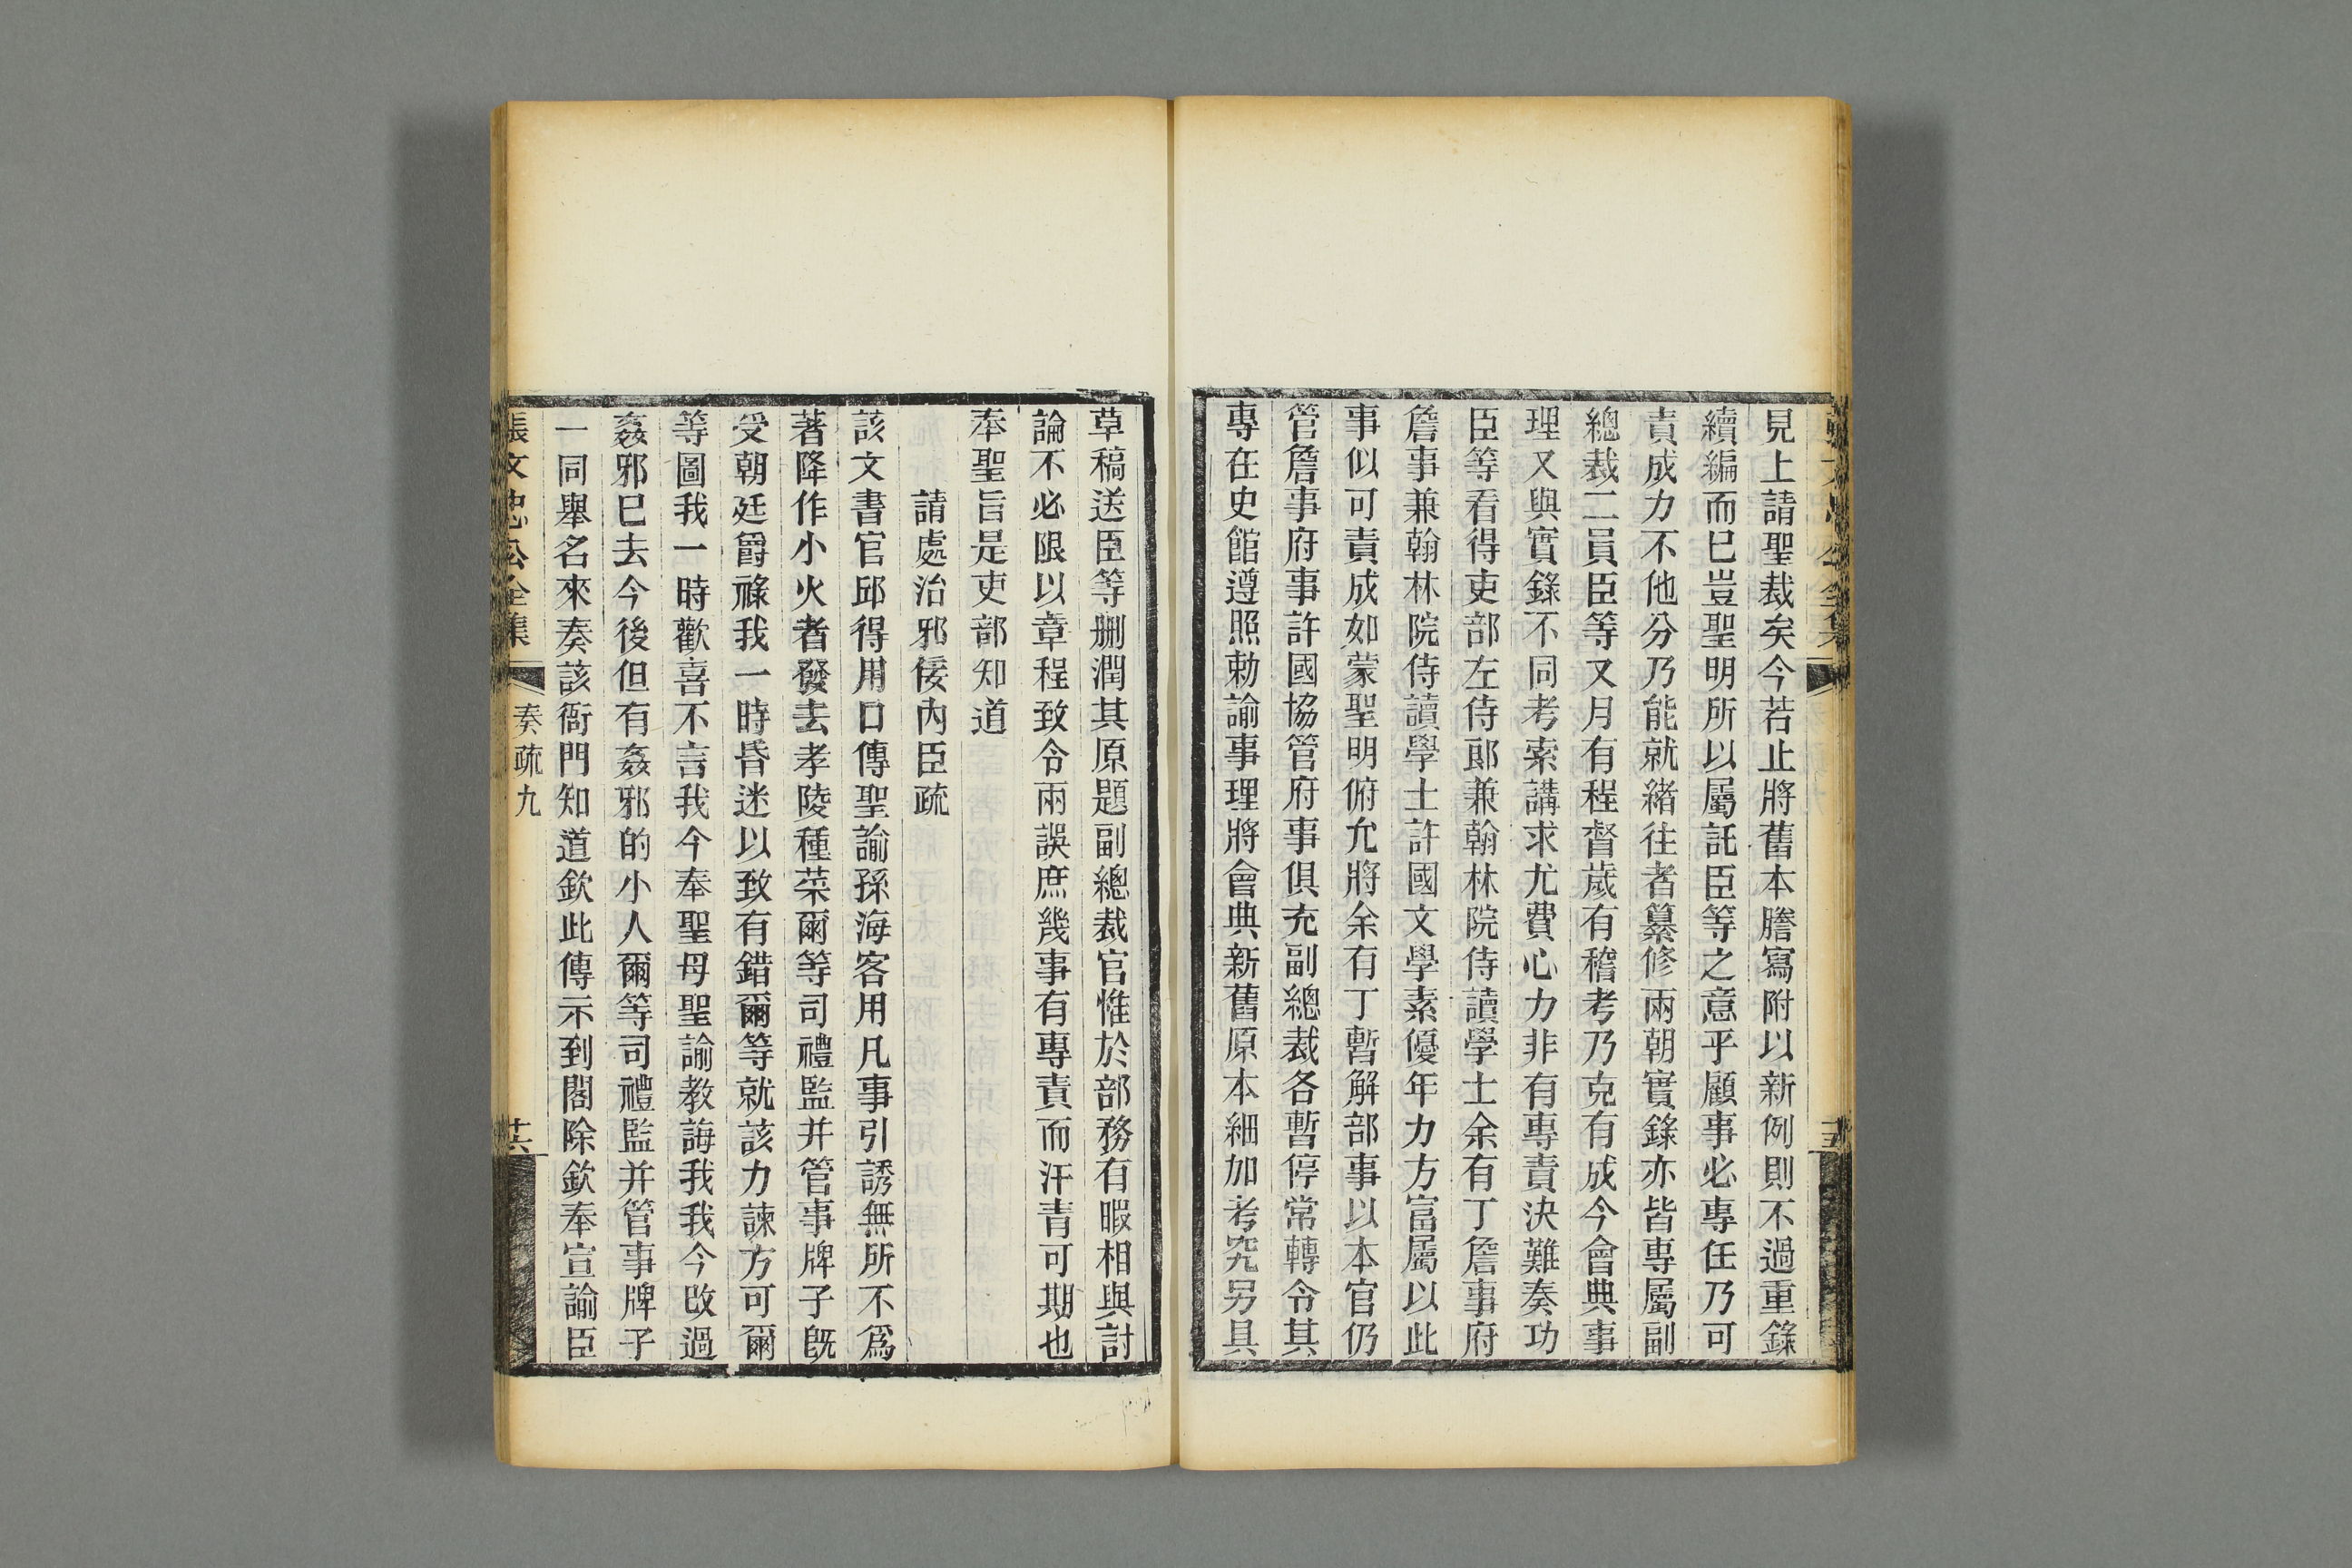 見上請聖裁矣今若止將舊本謄寫附以新例則不過重錄
續編而已豈聖明所以屬託臣等之意乎顧事必專任乃可
責成力不他分乃能就緒往者纂修兩朝實錄亦皆專屬副
總裁二員臣等又月有程督歲有稽考乃克有成今會典事
理又與實錄不同考索講求尤費心力非有專責決難奏功
臣等看得吏部左侍郎兼翰林院侍讀學士余有丁詹事府
詹事兼翰林院侍讀學士許國文學素優年力方富屬以此
事似可責成如蒙聖明俯允將余有丁暫解部事以本官仍
管詹事府事許國協管府事俱充副總裁各暫停常轉令其
專在史館遵照勅諭事理將會典新舊原本細加考究另具
草稿送臣等刪潤其原題副總裁官惟於部務有暇相與討
論不必限以章程致令兩誤庶幾事有專責而汗青可期也
奉聖旨是吏部知道
請處治邪佞內臣疏
該文書官邱得用口傳聖諭孫海客用凡事引誘無所不爲
著降作小火者發去孝陵種菜爾等司禮監并管事牌子既
受朝廷爵祿我一時昏迷以致有錯爾等就該力諫方可爾
等圖我一時歡喜不言我今奉聖母聖諭教誨我我今改過
姦邪已去今後但有姦邪的小人爾等司禮監并管事牌子
一同舉名來奏該衙門知道欽此傳示到閣除欽奉宣諭臣
張文忠公全集
奏疏九
廿六